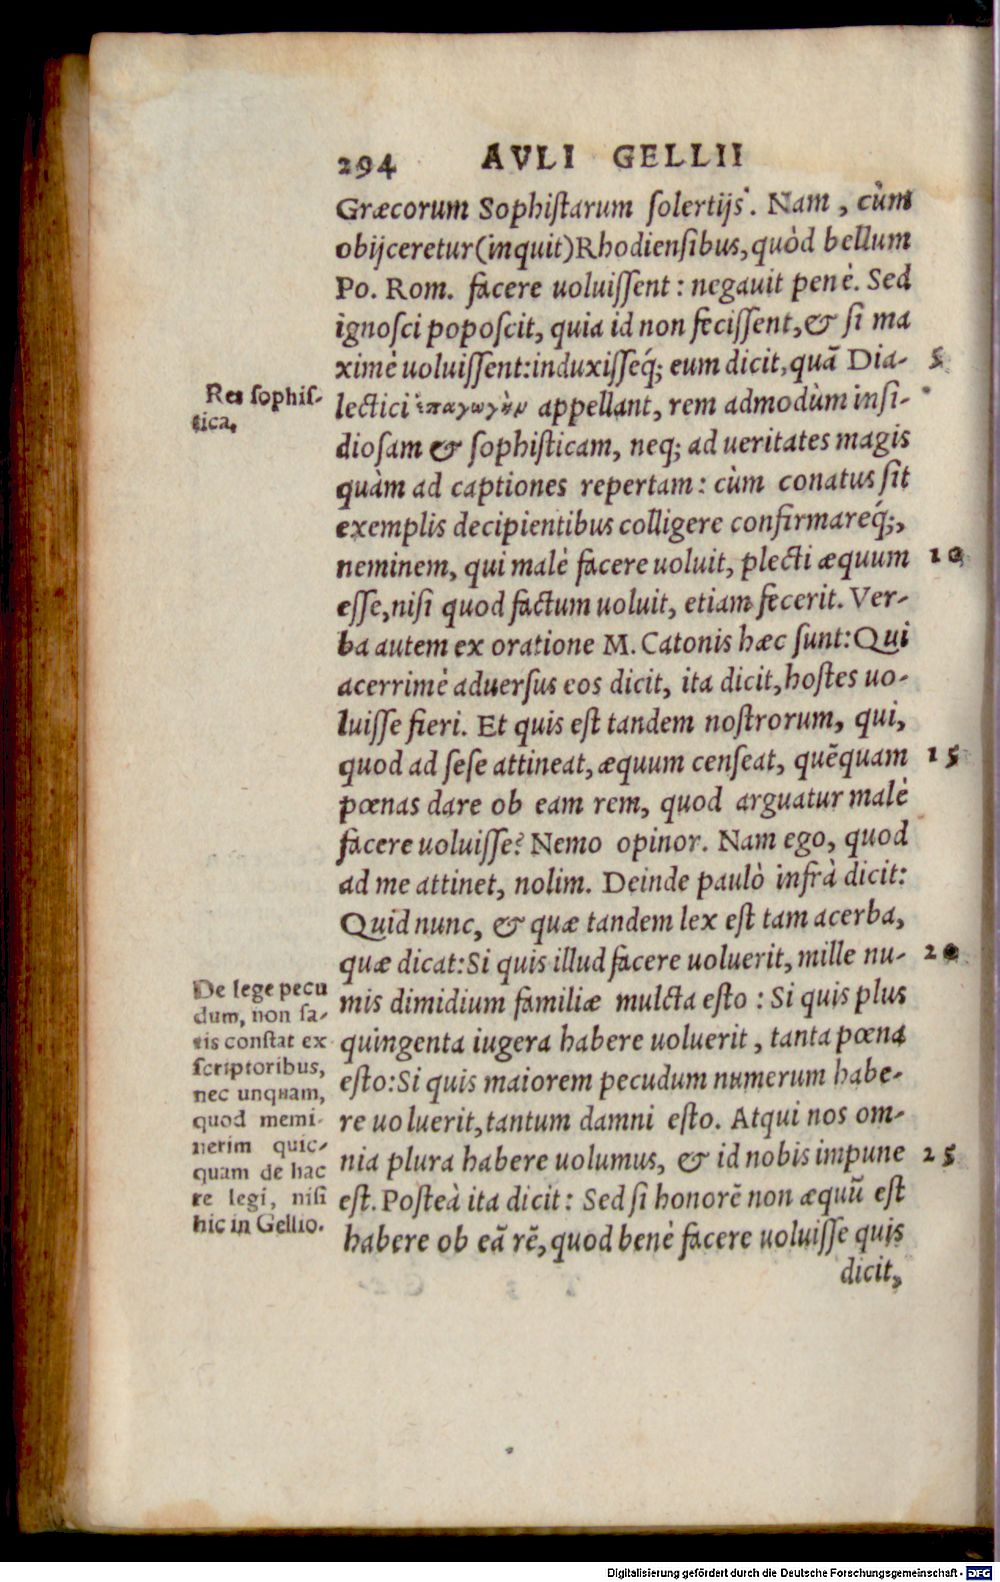 294 AVLI GELLII
Græcorum Sophistarum solertijs. Nam, cùm
obijceretur (inquit) Rhodiensibus, quòd bellum
Po. Rom. facere uoluissent: negauit penè. Sed
ignosci poposcit, quia id non fecissent, & si ma
ximè uoluissent: induxisseq́; eum dicit, quã Dia- 5
Res sophis-
tica.
lectici ἐπαγωγὴν appellant, rem admodùm insi-
diosam & sophisticam, neq; ad ueritates magis
quàm ad captiones repertam: cùm conatus sit
exemplis decipientibus colligere confirmareq́;,
neminem, qui malè facere uoluit, plecti æquum 10
esse, nisi quod factum uoluit, etiam fecerit. Ver-
ba autem ex oratione M. Catonis hæc sunt: Qui
acerrimè aduersus eos dicit, ita dicit, hostes uo-
luisse fieri. Et quis est tandem nostrorum, qui,
quod ad sese attineat, æquum censeat, quẽquam 15
pœnas dare ob eam rem, quod arguatur malè
facere uoluisse? Nemo opinor. Nam ego, quod
ad me attinet, nolim. Deinde paulò infrà dicit:
Quid nunc, & quæ tandem lex est tam acerba,
quæ dicat: Si quis illud facere uoluerit, mille nu- 20
mis dimidium familiæ mulcta esto: Si quis plus
quingenta iugera habere uoluerit, tanta pœna
esto: Si quis maiorem pecudum numerum habe-
re uoluerit, tantum damni esto. Atqui nos om-
nia plura habere uolumus, & id nobis impune 25
est. Posteà ita dicit: Sed si honorẽ non æquũ est
habere ob eã rẽ, quod benè facere uoluisse quis
dicit,
De lege pecu
dum, non sa-
tis constat ex
scriptoribus,
nec unquam,
quod memi-
nerim quic-
quam de hac
re legi, nisi
hic in Gellio.
Digitalisierung gefördert durch die Deutsche Forschungsgemeinschaft - DFG